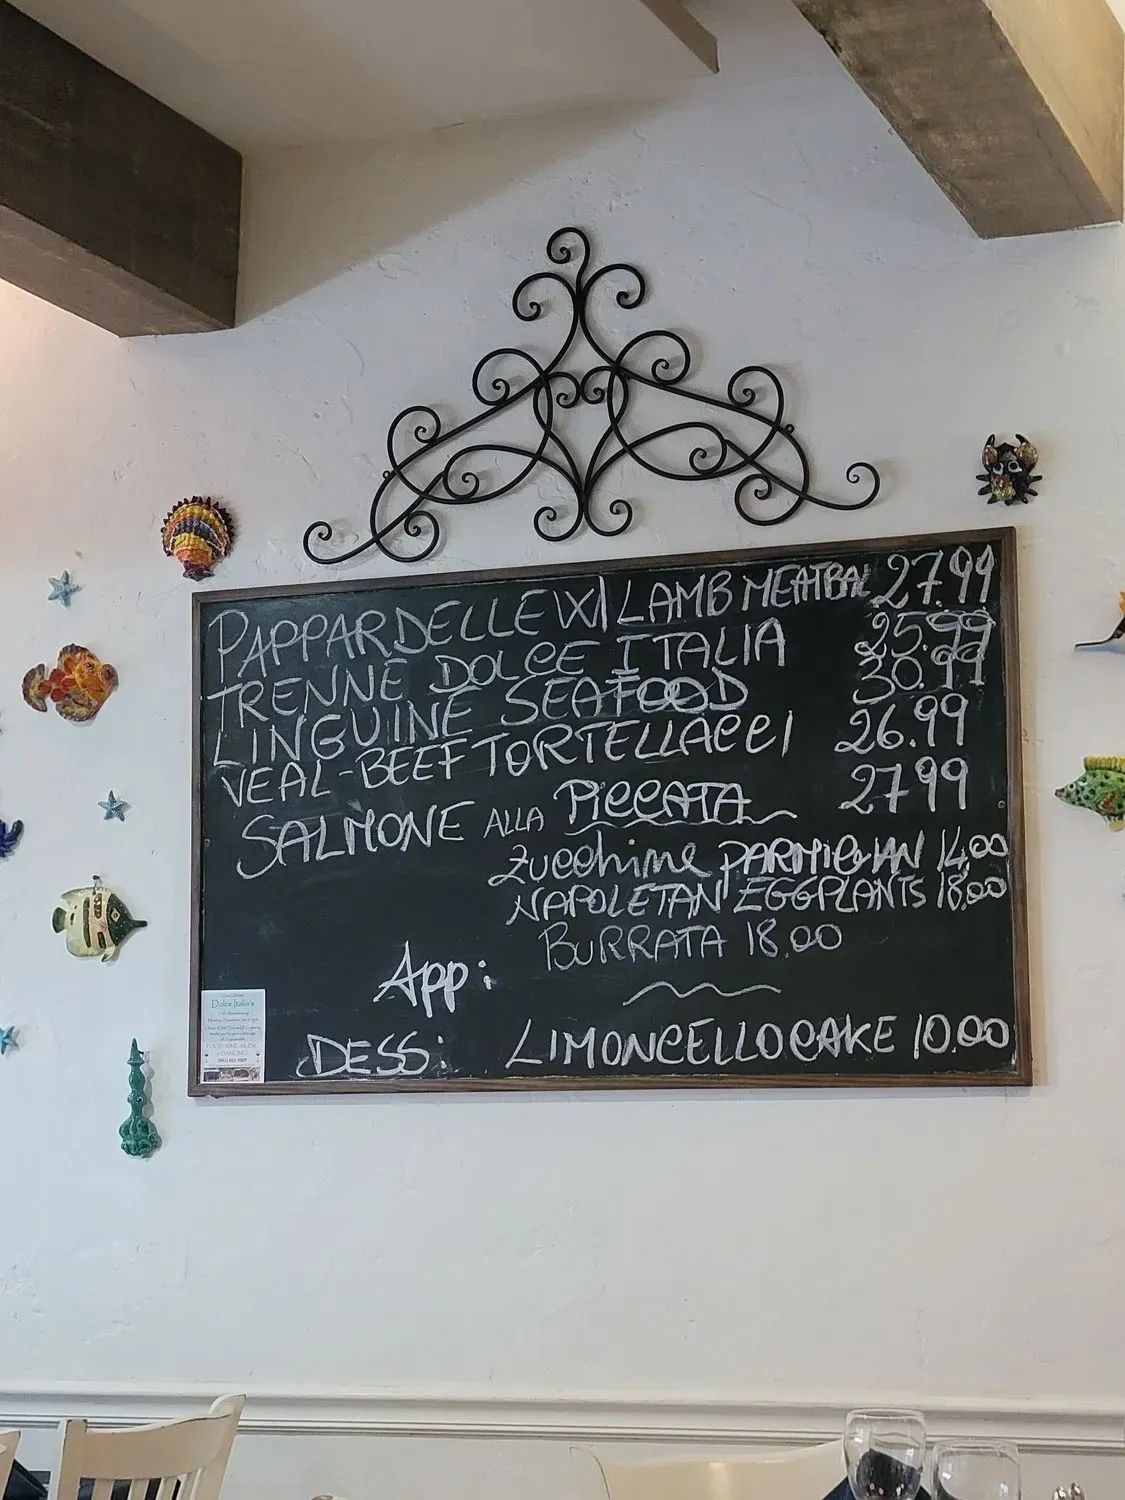 PAPPARDELLE W/ LAMB MEATBAL 27.99
TRENNE DOLCE ITALIA 25.99
LINGUINE SEAFOOD 30.99
VEAL-BEEF TORTELLACCI 26.99
SALMONE ALLA PICCATA 27.99
Zucchine PARMIGIAN 14.00
NAPOLETAN EGGPLANTS 18.00
BURRATA 18.00
App:
DESS: LIMONCELLO CAKE 10.00
Dolce Italia's
FOOD WINE MUSIC
& DANCING